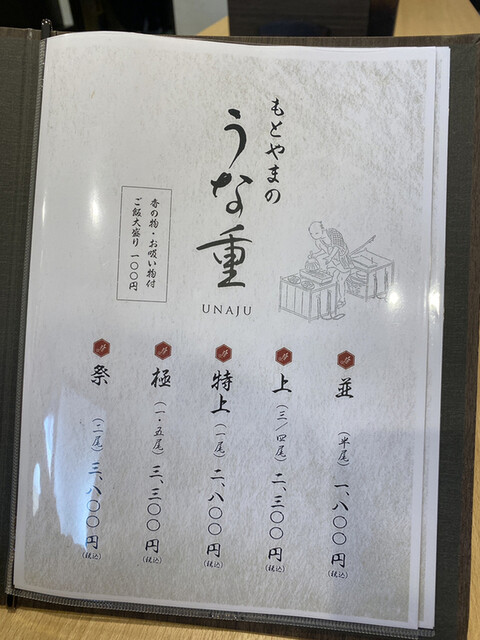 もとやまの
うな重
UNAJU
香の物・お吸い物付
ご飯大盛り 一〇〇円
並 (半尾) 一、八〇〇円(税込)
上 (三/四尾) 二、三〇〇円(税込)
特上 (一尾) 二、八〇〇円(税込)
極 (一・五尾) 三、三〇〇円(税込)
祭 (二尾) 三、八〇〇円(税込)